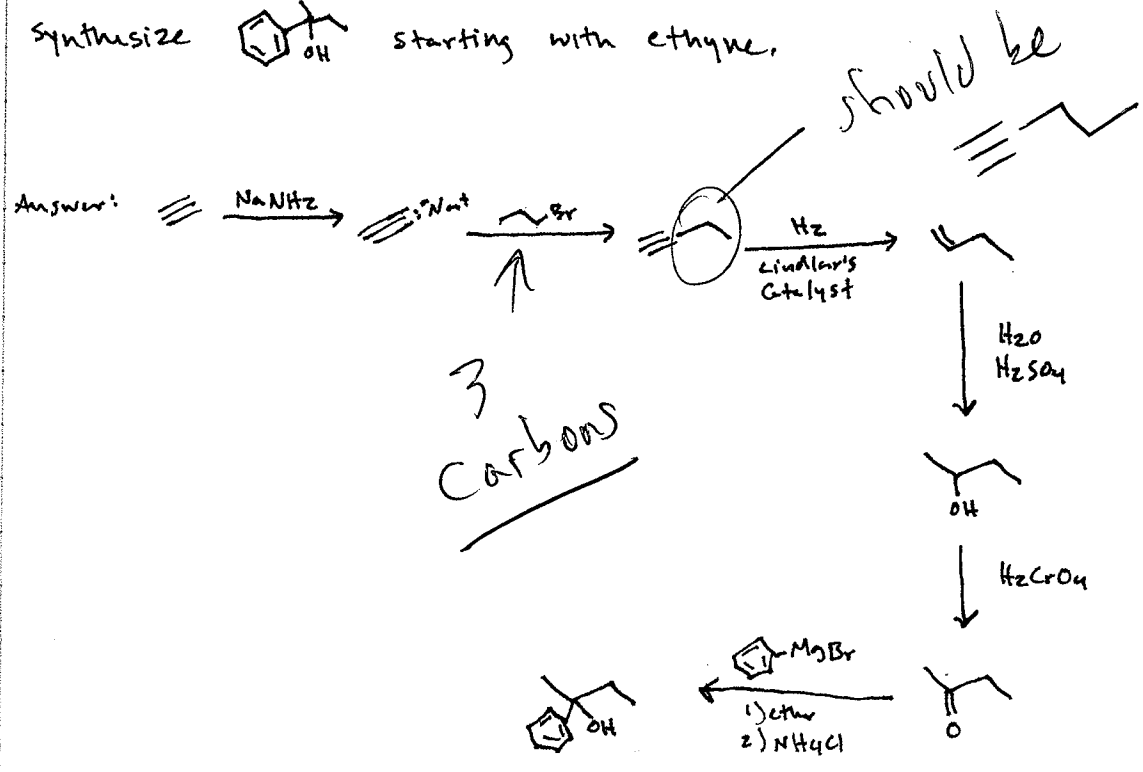 Synthesize OH starting with ethyne.
should be
Answer: NaNH2 :⁻Na+ Br H2
Lindlar's
Catalyst
H2O
H2SO4
3
Carbons
OH
H2CrO4
MgBr
OH 1) ether O
2) NH4Cl